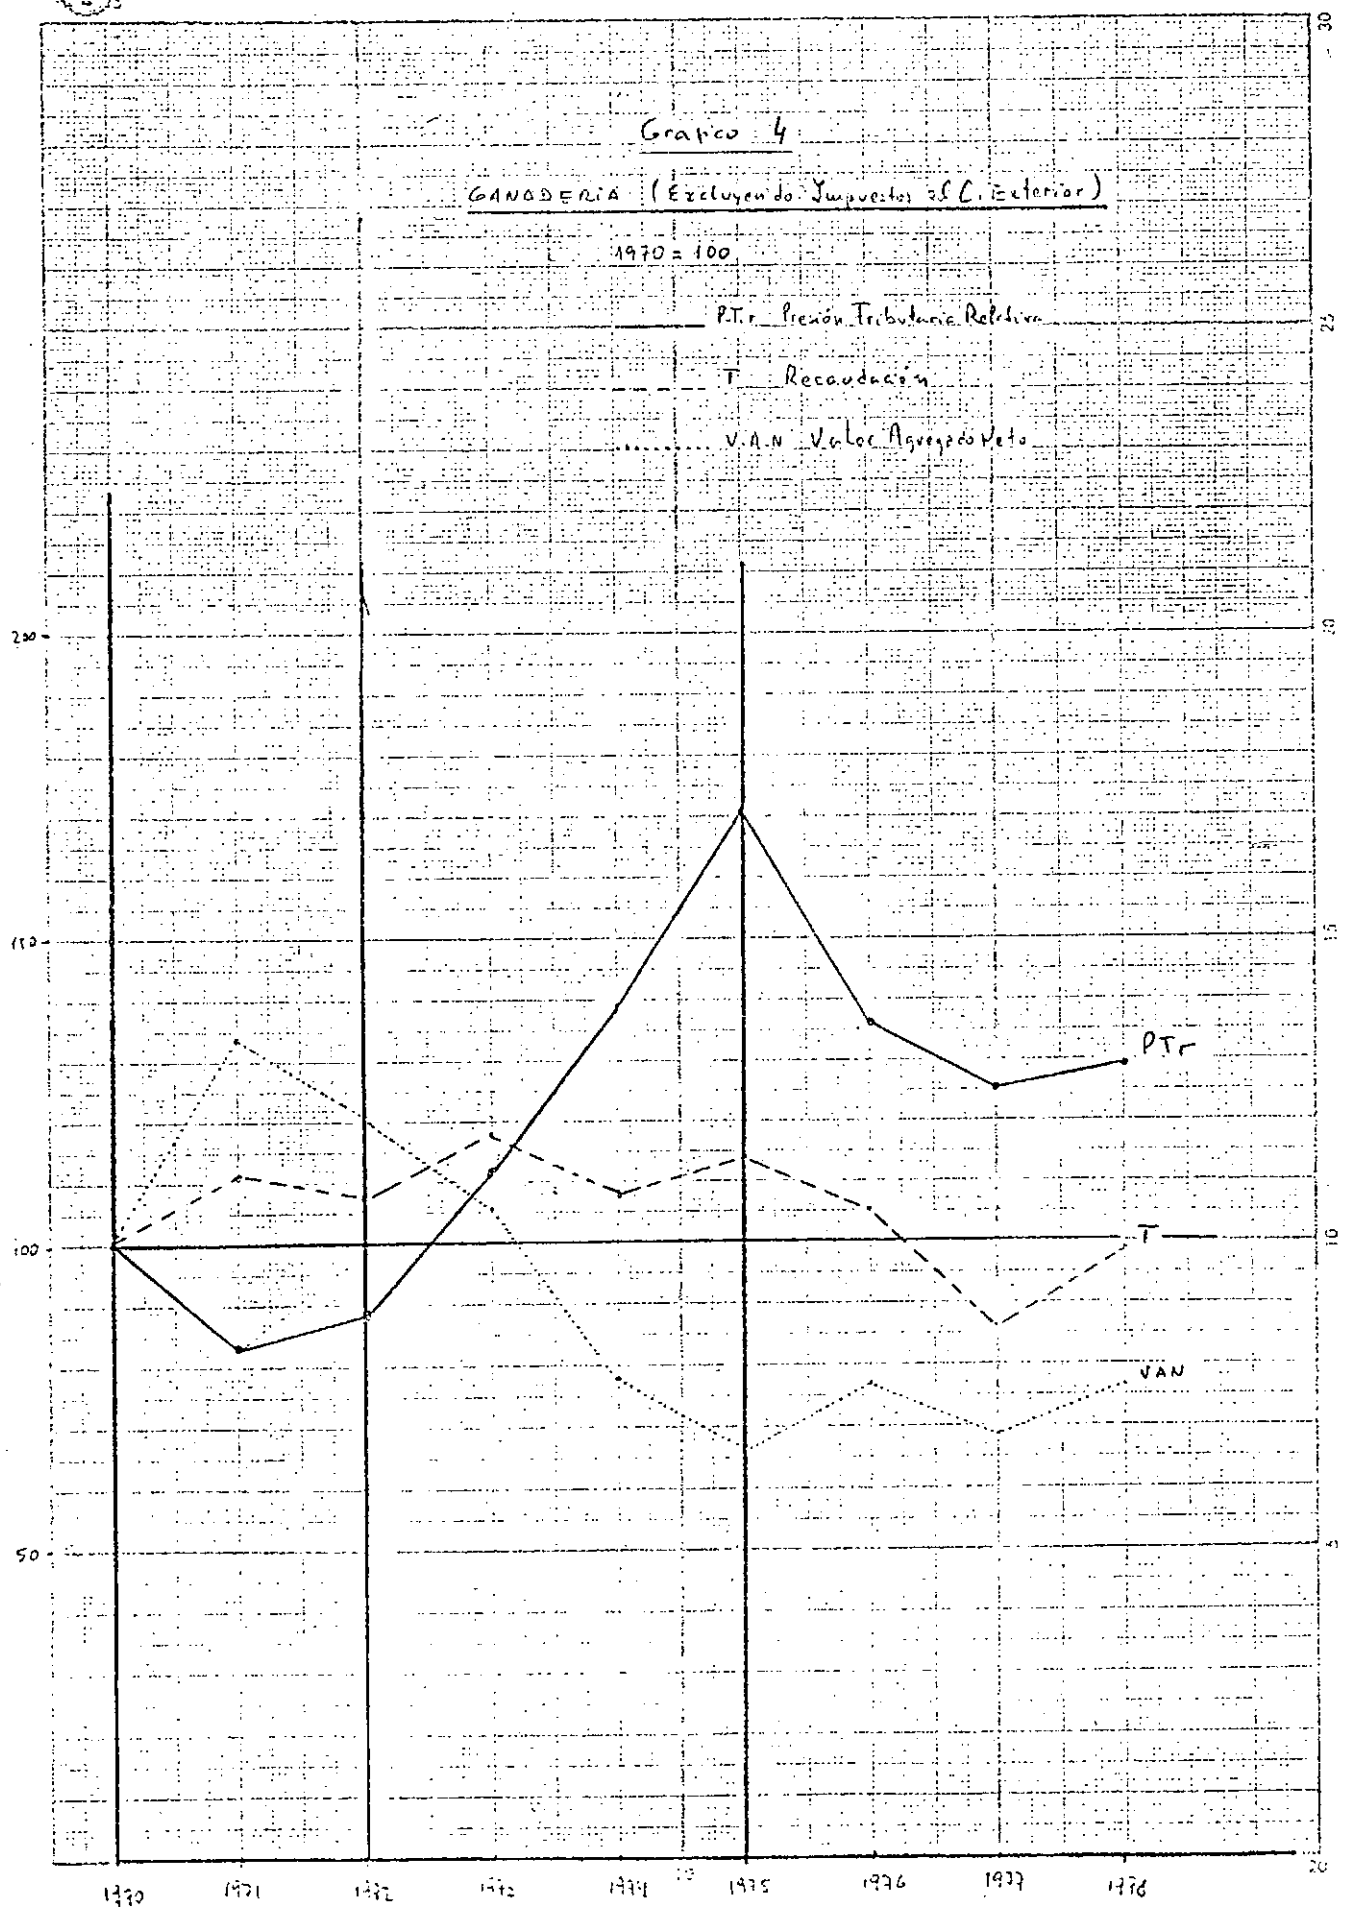 30
Grafico 4
GANADERIA (Excluyendo Impuestos al C. Exterior)
1970 = 100
P.T.r Presión Tributaria Relativa
25
T Recaudación
V.A.N Valor Agregado Neto
200
20
150
15
PTr
100
T
10
VAN
50
5
1970 1971 1972 1973 1974 10 1975 1976 1977 1978
20